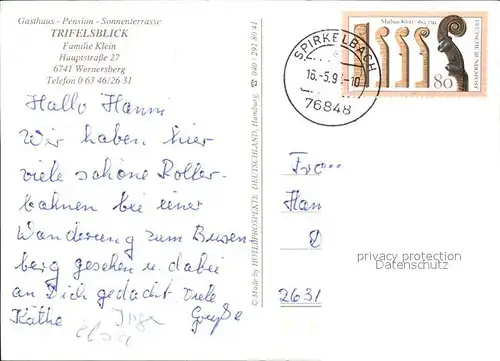 Gasthaus - Pension - Sonnenterrasse
TRIFELSBLICK
Familie Klein
Hauptstraße 27
6741 Wernersberg
Telefon 0 63 46/26 31
Hallo Hanni
Wir haben hier
viele schöne Roller-
bahnen bei einer
Wanderung zum Busen
berg gesehen u. dabei
an Dich gedacht. Viele
Käthe Inge Grüße
Elsa
© Made by HOTELPROSPEKTE DEUTSCHLAND, Hamburg, ☎ 040 / 291 80 41
SPIRKELBACH
16.-5.9 -10
76848
Mathias Klotz
DEUTSCHE BUNDESPOST
80
Fra
Han
2631
privacy protection
Datenschutz